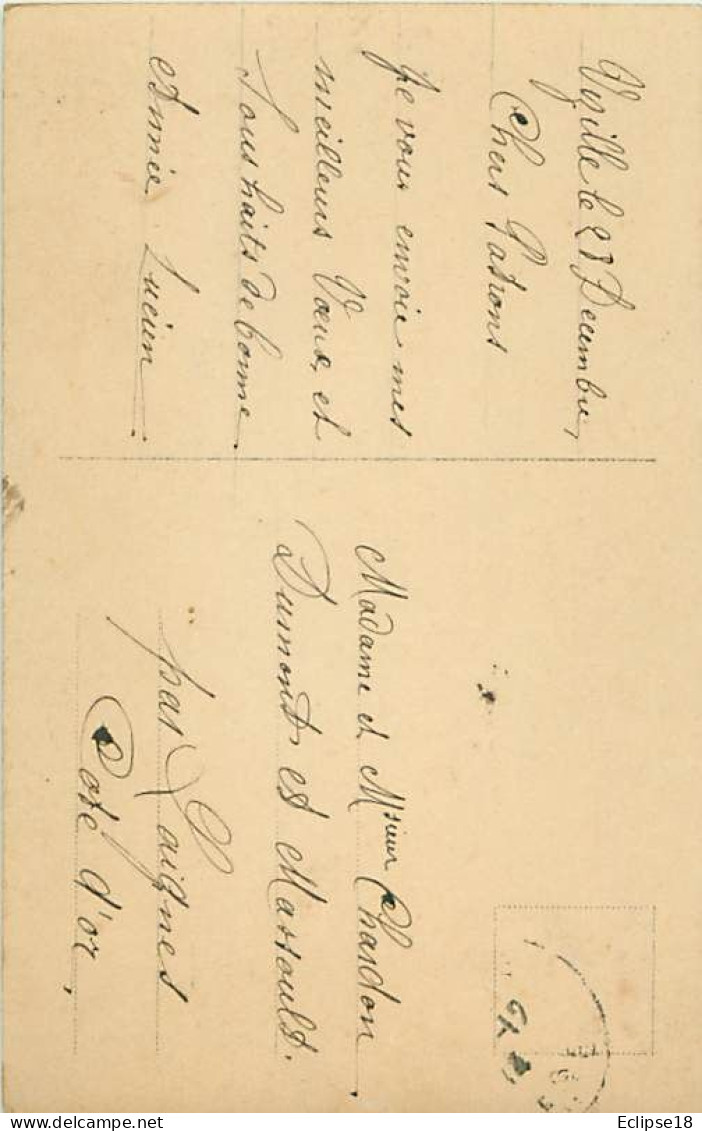 Vizille le 28 Decembre,
Chers Patrons
Je vous envoie mes
meilleurs Vœux, et
Soushaits de bonne
Année. Lucien
Madame et Msieur Chardon
Dumont et Massoult.
par Laignes
Cote d'or,
Eclipse18